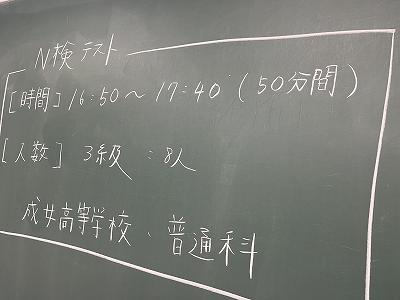 N検テスト
[時間] 16:50〜17:40 (50分間)
[人数] 3級:8人
成女高等学校、普通科